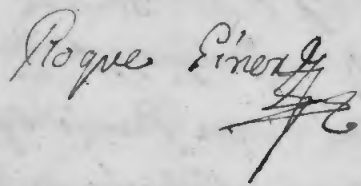 Roque Giner